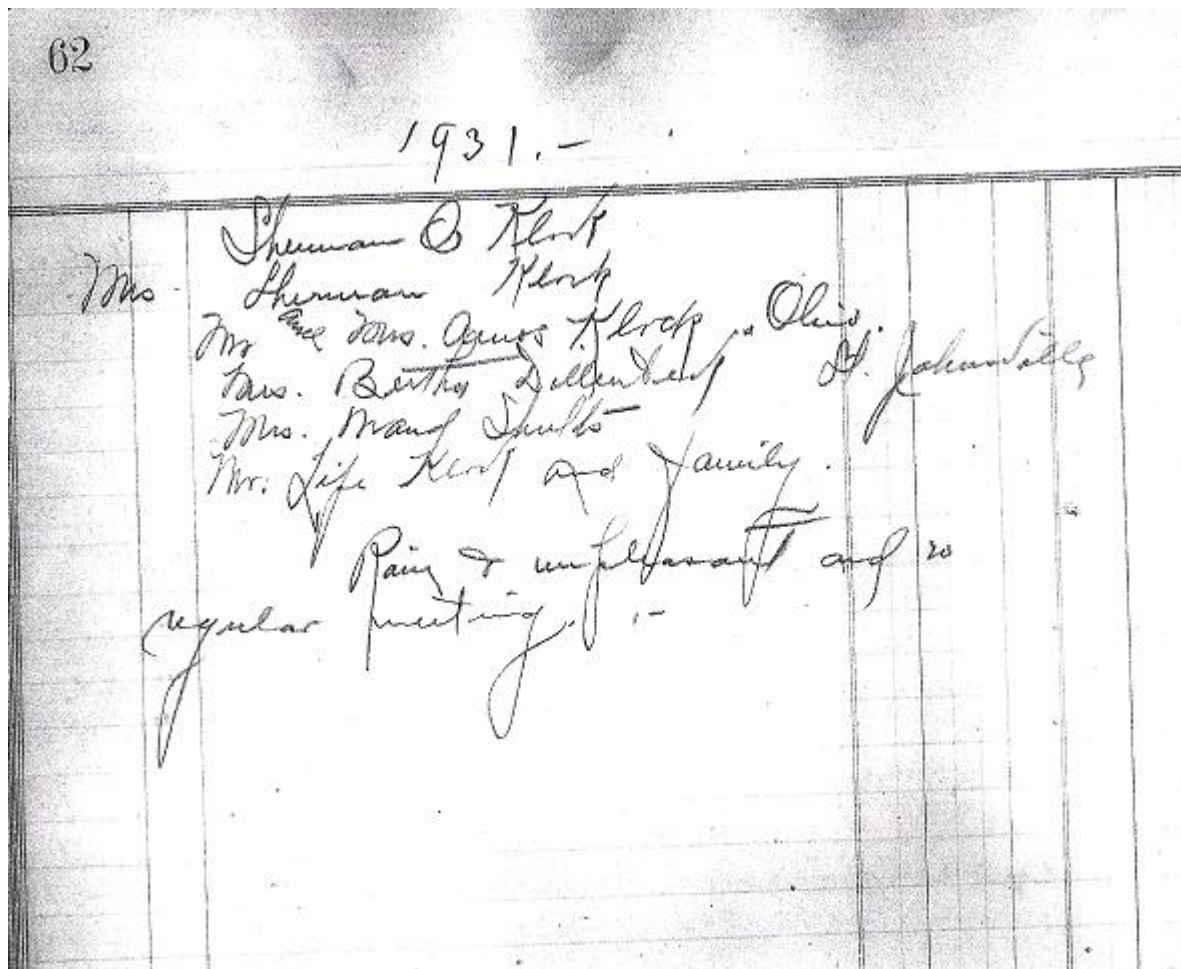 62
1931.-
Sherman O Klock
Mrs Sherman Klock
Mr and Mrs. Amos Klock .. Ohio.
Mrs. Bertha Dillenbeck St. Johnsville
Mrs. Maud Shults
Mr. Life Klock and family.
Rain & unpleasant and no
regular meeting. :-